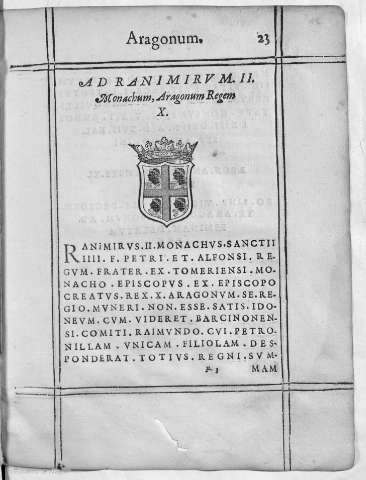 Aragonum. 23
AD RANIMIRVM. II.
Monachum, Aragonum Regem
X.
RANIMIRVS. II. MONACHVS. SANCTII
IIII. F. PETRI. ET. ALFONSI. RE-
GVM. FRATER. EX. TOMERIENSI. MO-
NACHO. EPISCOPVS. EX. EPISCOPO
CREATVS. REX. X. ARAGONVM. SE. RE-
GIO. MVNERI. NON. ESSE. SATIS. IDO-
NEVM. CVM. VIDERET. BARCINONEN-
SI. COMITI. RAIMVNDO. CVI. PETRO-
NILLAM. VNICAM. FILIOLAM. DES-
PONDERAT. TOTIVS. REGNI. SVM-
MAM